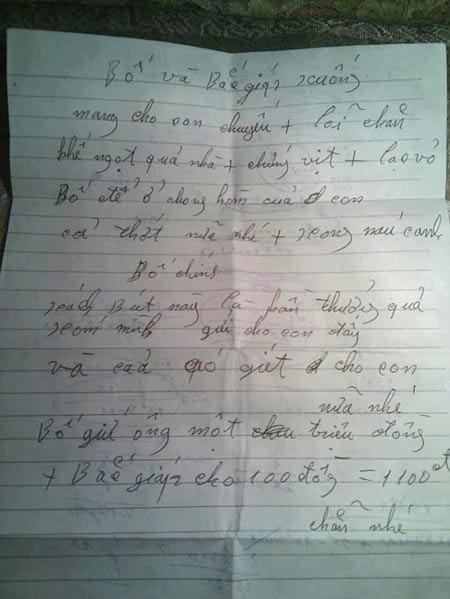 Bố và Baế giáy xuống
mang cho con chuyến + laĩ chẵn
khế ngọt quả nhà + chứng vịt + lạc vỏ
Bố để ở chong hòm cuả con
cả thớt nữa nhé + xong nấu canh
Bố chính
xách Bút này là phần thưởng quả
xom mình gửi cho con đấy
và caả gó giét cho con
nữa nhé
Bố gửi ông một triệu đồng
+ Baế giáy cho 100 đồng = 1100đ
chẵn nhé